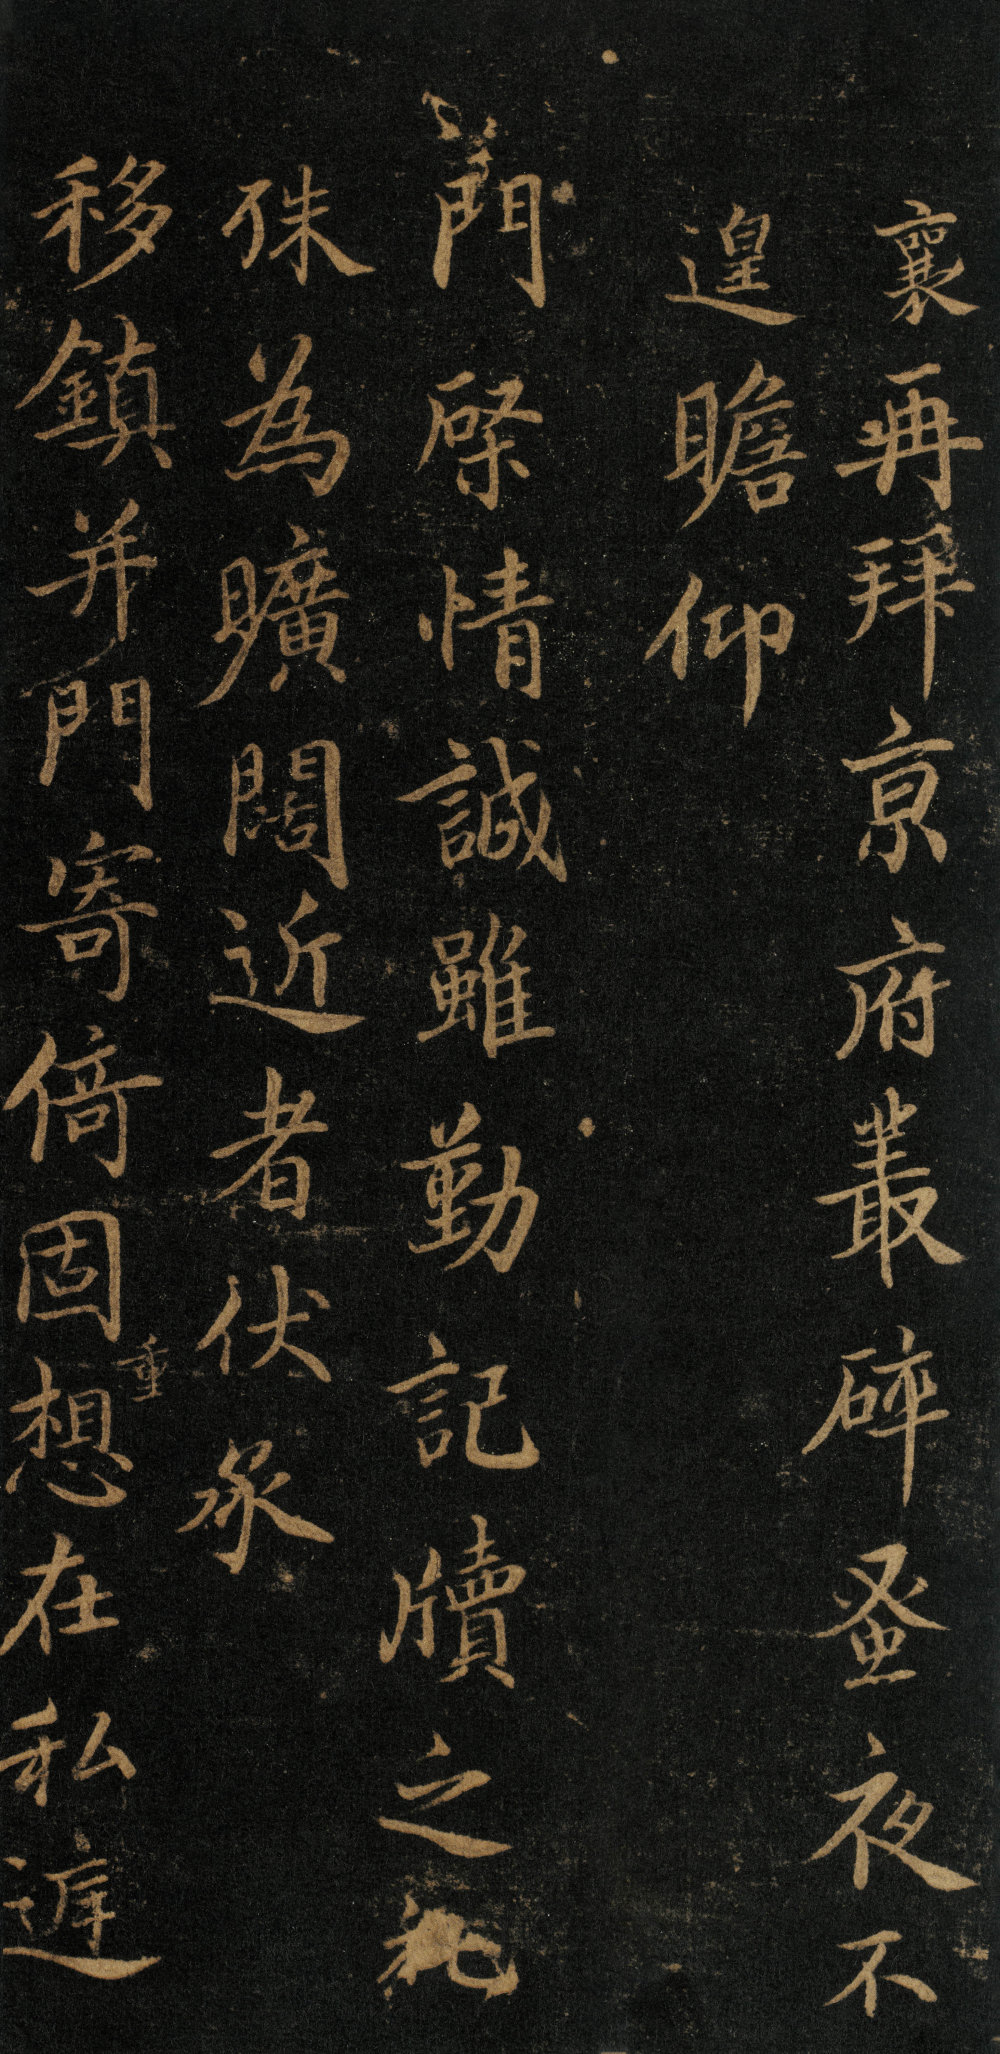 襄再拜京府叢碎蚤夜不
遑瞻仰
門棨情誠雖勤記牘之
殊為曠闊近者伏承
移鎮并門寄倚固重想在私